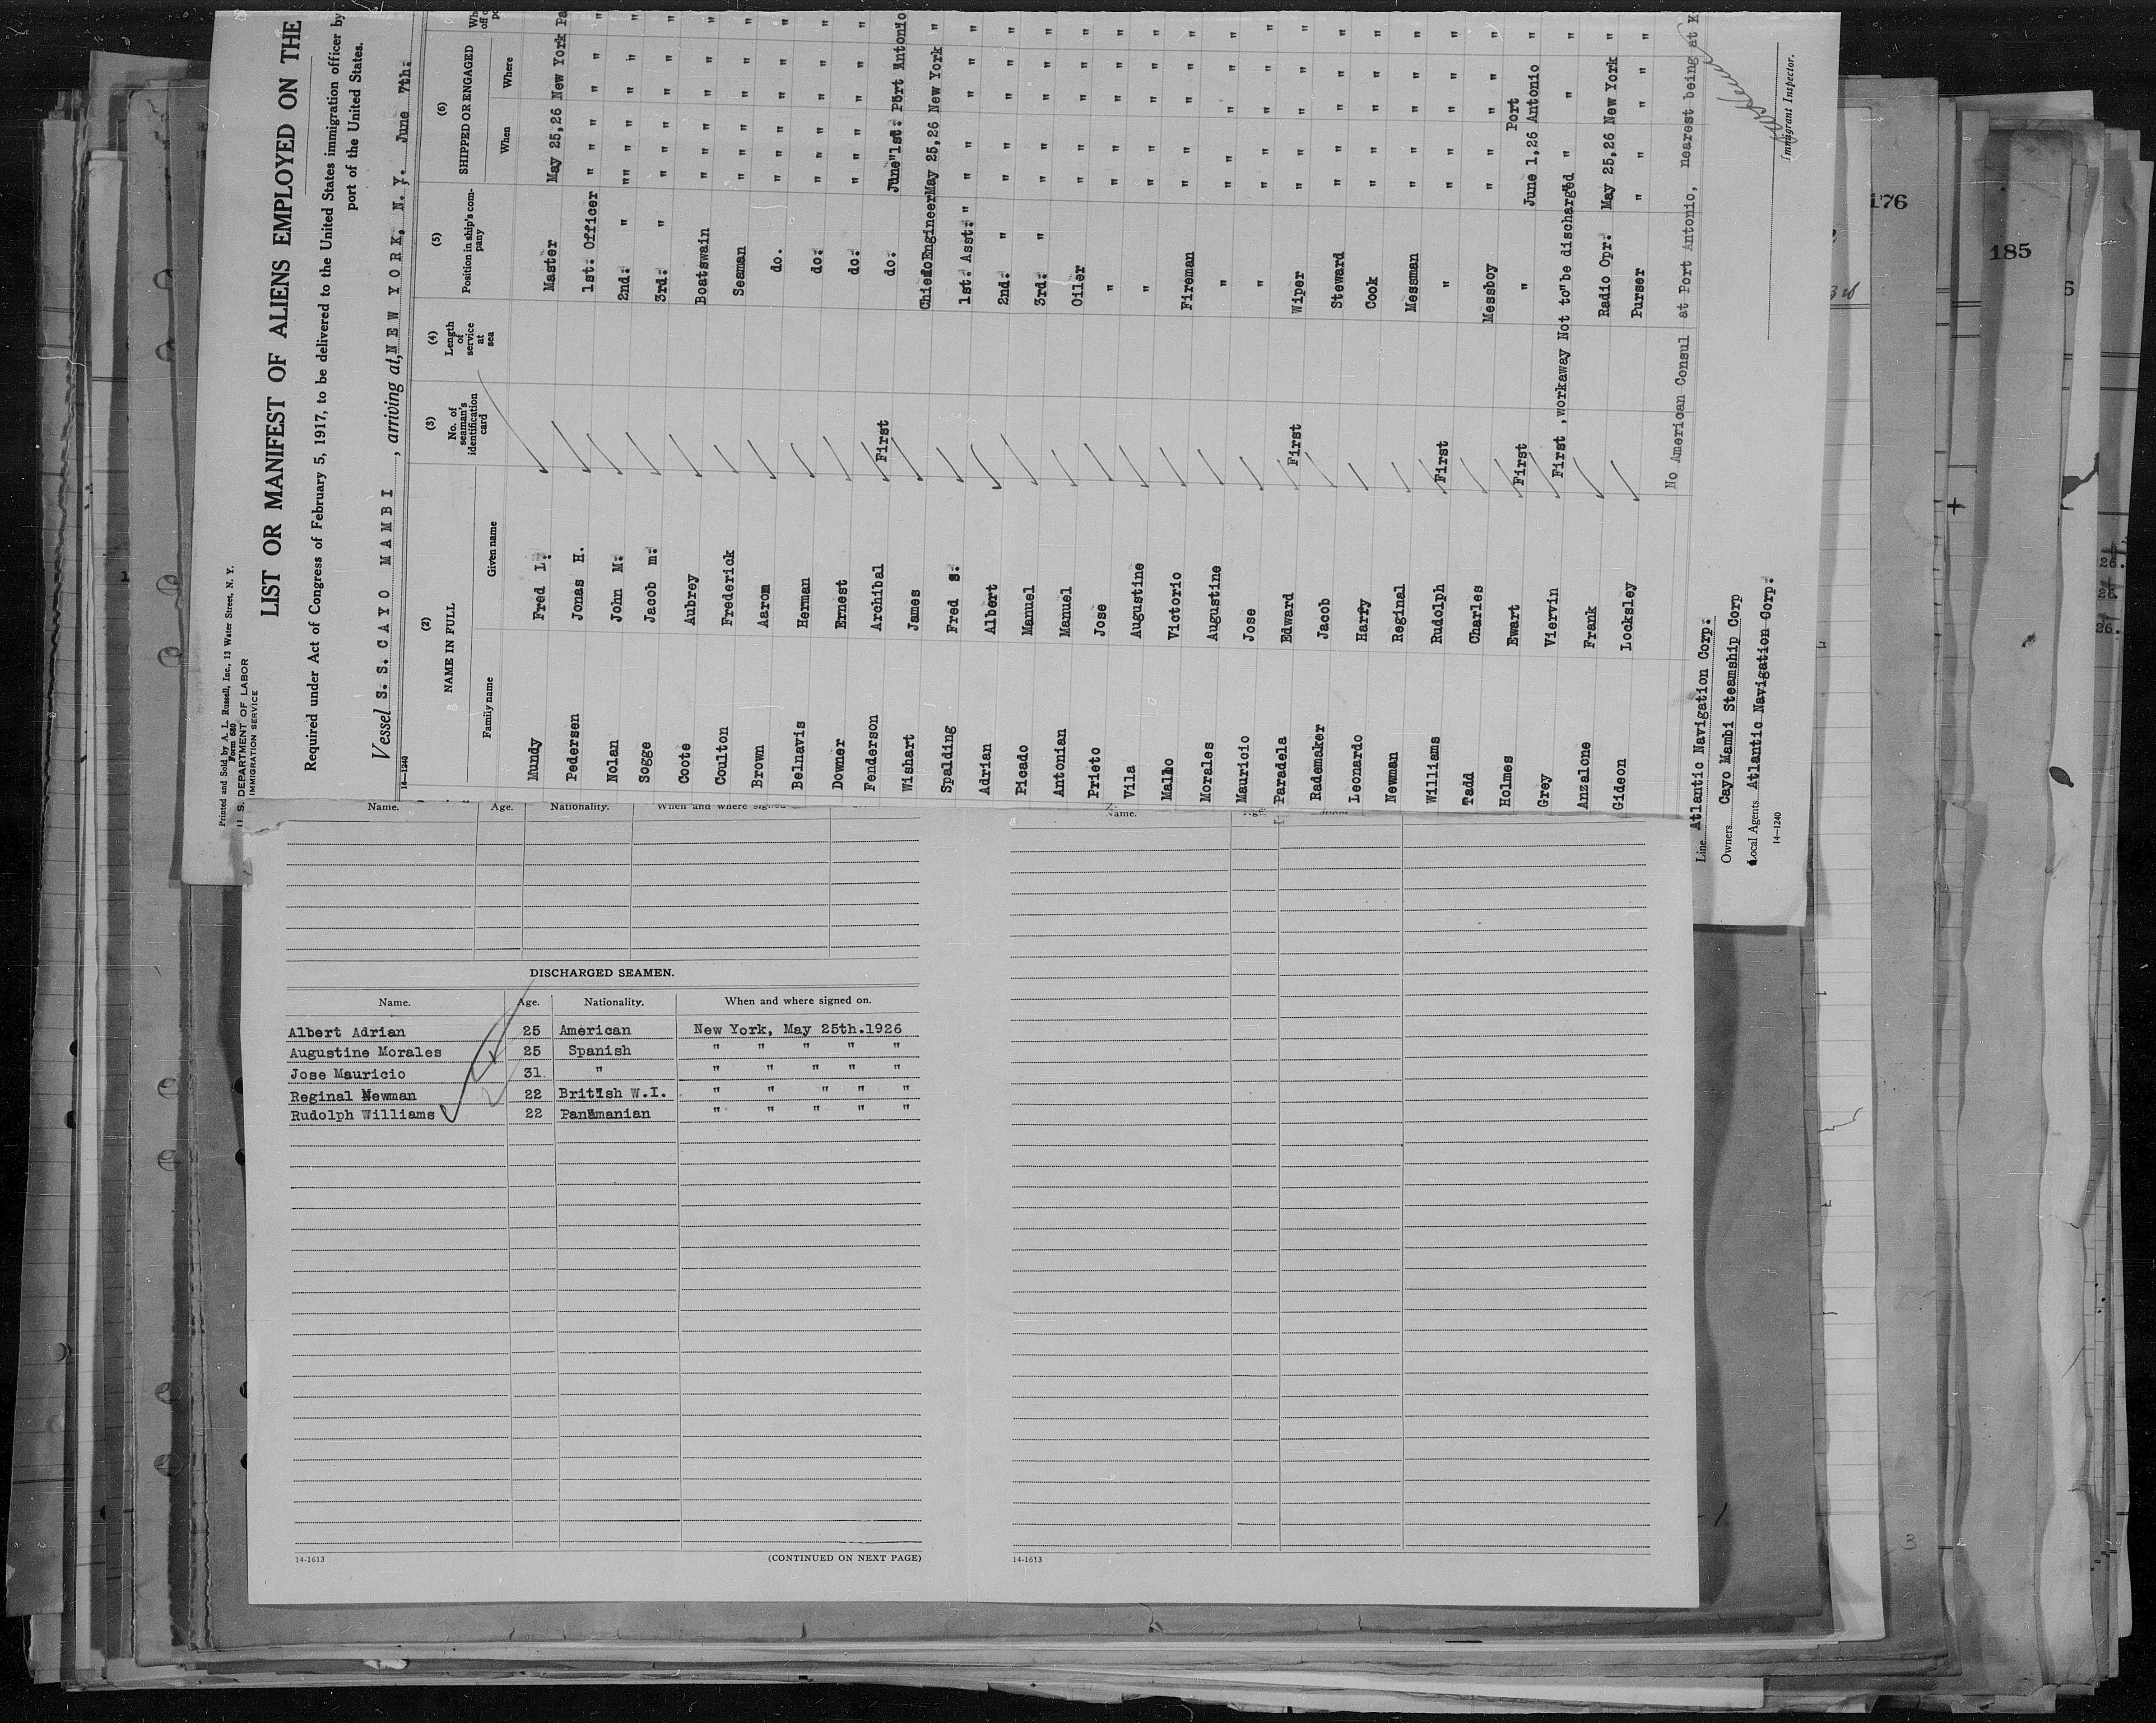 Printed and Sold by A. L. Russell, Inc., 13 Water Street, N. Y.
Form 680
U. S. DEPARTMENT OF LABOR
IMMIGRATION SERVICE
LIST OR MANIFEST OF ALIENS EMPLOYED ON THE
Required under Act of Congress of February 5, 1917, to be delivered to the United States immigration officer by
port of the United States.
Vessel S. S. CAYO MAMBI, arriving at, NEW YORK, N. Y. June 7th:
14—1240
(2) NAME IN FULL
Family name Given name
(3) No. of seaman's identification card
(4) Length of service at sea
(5) Position in ship's company
(6) SHIPPED OR ENGAGED
When Where
Mundy Fred L: Master May 25,26 New York Pa
Pedersen Jonas H. 1st: Officer " " " " "
Nolan John M: 2nd: " "" " " " "
Sogge Jacob m: 3rd: " " " " " "
Coote Aubrey Boatswain " " " " "
Coulton Frederick Seaman " " " " "
Brown Aarom do. " " " " "
Belnavis Herman do: " " " " "
Downer Ernest do: " " " " "
Fenderson Archibal First do: June"1st: Port Antonio
Wishart James Chief Engineer May 25,26 New York "
Spalding Fred S: 1st: Asst: " " " " " "
Adrian Albert 2nd: " " " " " "
Picado Manuel 3rd: " " " " " "
Antonian Manuel Oiler " " " " "
Prieto Jose " " " " " "
Vila Augustine " " " " " "
Malho Victorio Fireman " " " " "
Morales Augustine " " " " " "
Mauricio Jose " " " " " "
Paradela Edward First Wiper " " " " "
Rademaker Jacob Steward " " " " "
Leonardo Harry Cook " " " " "
Newman Reginal Messman " " " " "
Williams Rudolph First " " " " " "
Tadd Charles Messboy " " " " "
Holmes Ewart First " June 1,26 Port Antonio "
Grey Viervin First ,workaway Not to"be discharged " " "
Anzalone Frank Radio Opr: May 25,26 New York "
Gideon Locksley Purser " " " " "
No American Consul at Port Antonio, nearest being at K
Line Atlantic Navigation Corp:
Owners Cayo Mambi Steamship Corp
Local Agents Atlantic Navigation Corp:
14—1240
Immigrant Inspector.
176
185
Name. Age. Nationality. When and where signed
Name.
DISCHARGED SEAMEN.
Name. Age. Nationality. When and where signed on.
Albert Adrian 25 American New York, May 25th.1926
Augustine Morales 25 Spanish " " " " "
Jose Mauricio 31 " " " " " "
Reginal Newman 22 British W.I. " " " " "
Rudolph Williams 22 Panamanian " " " " "
14-1613
(CONTINUED ON NEXT PAGE)
14-1613
26.
26.
3